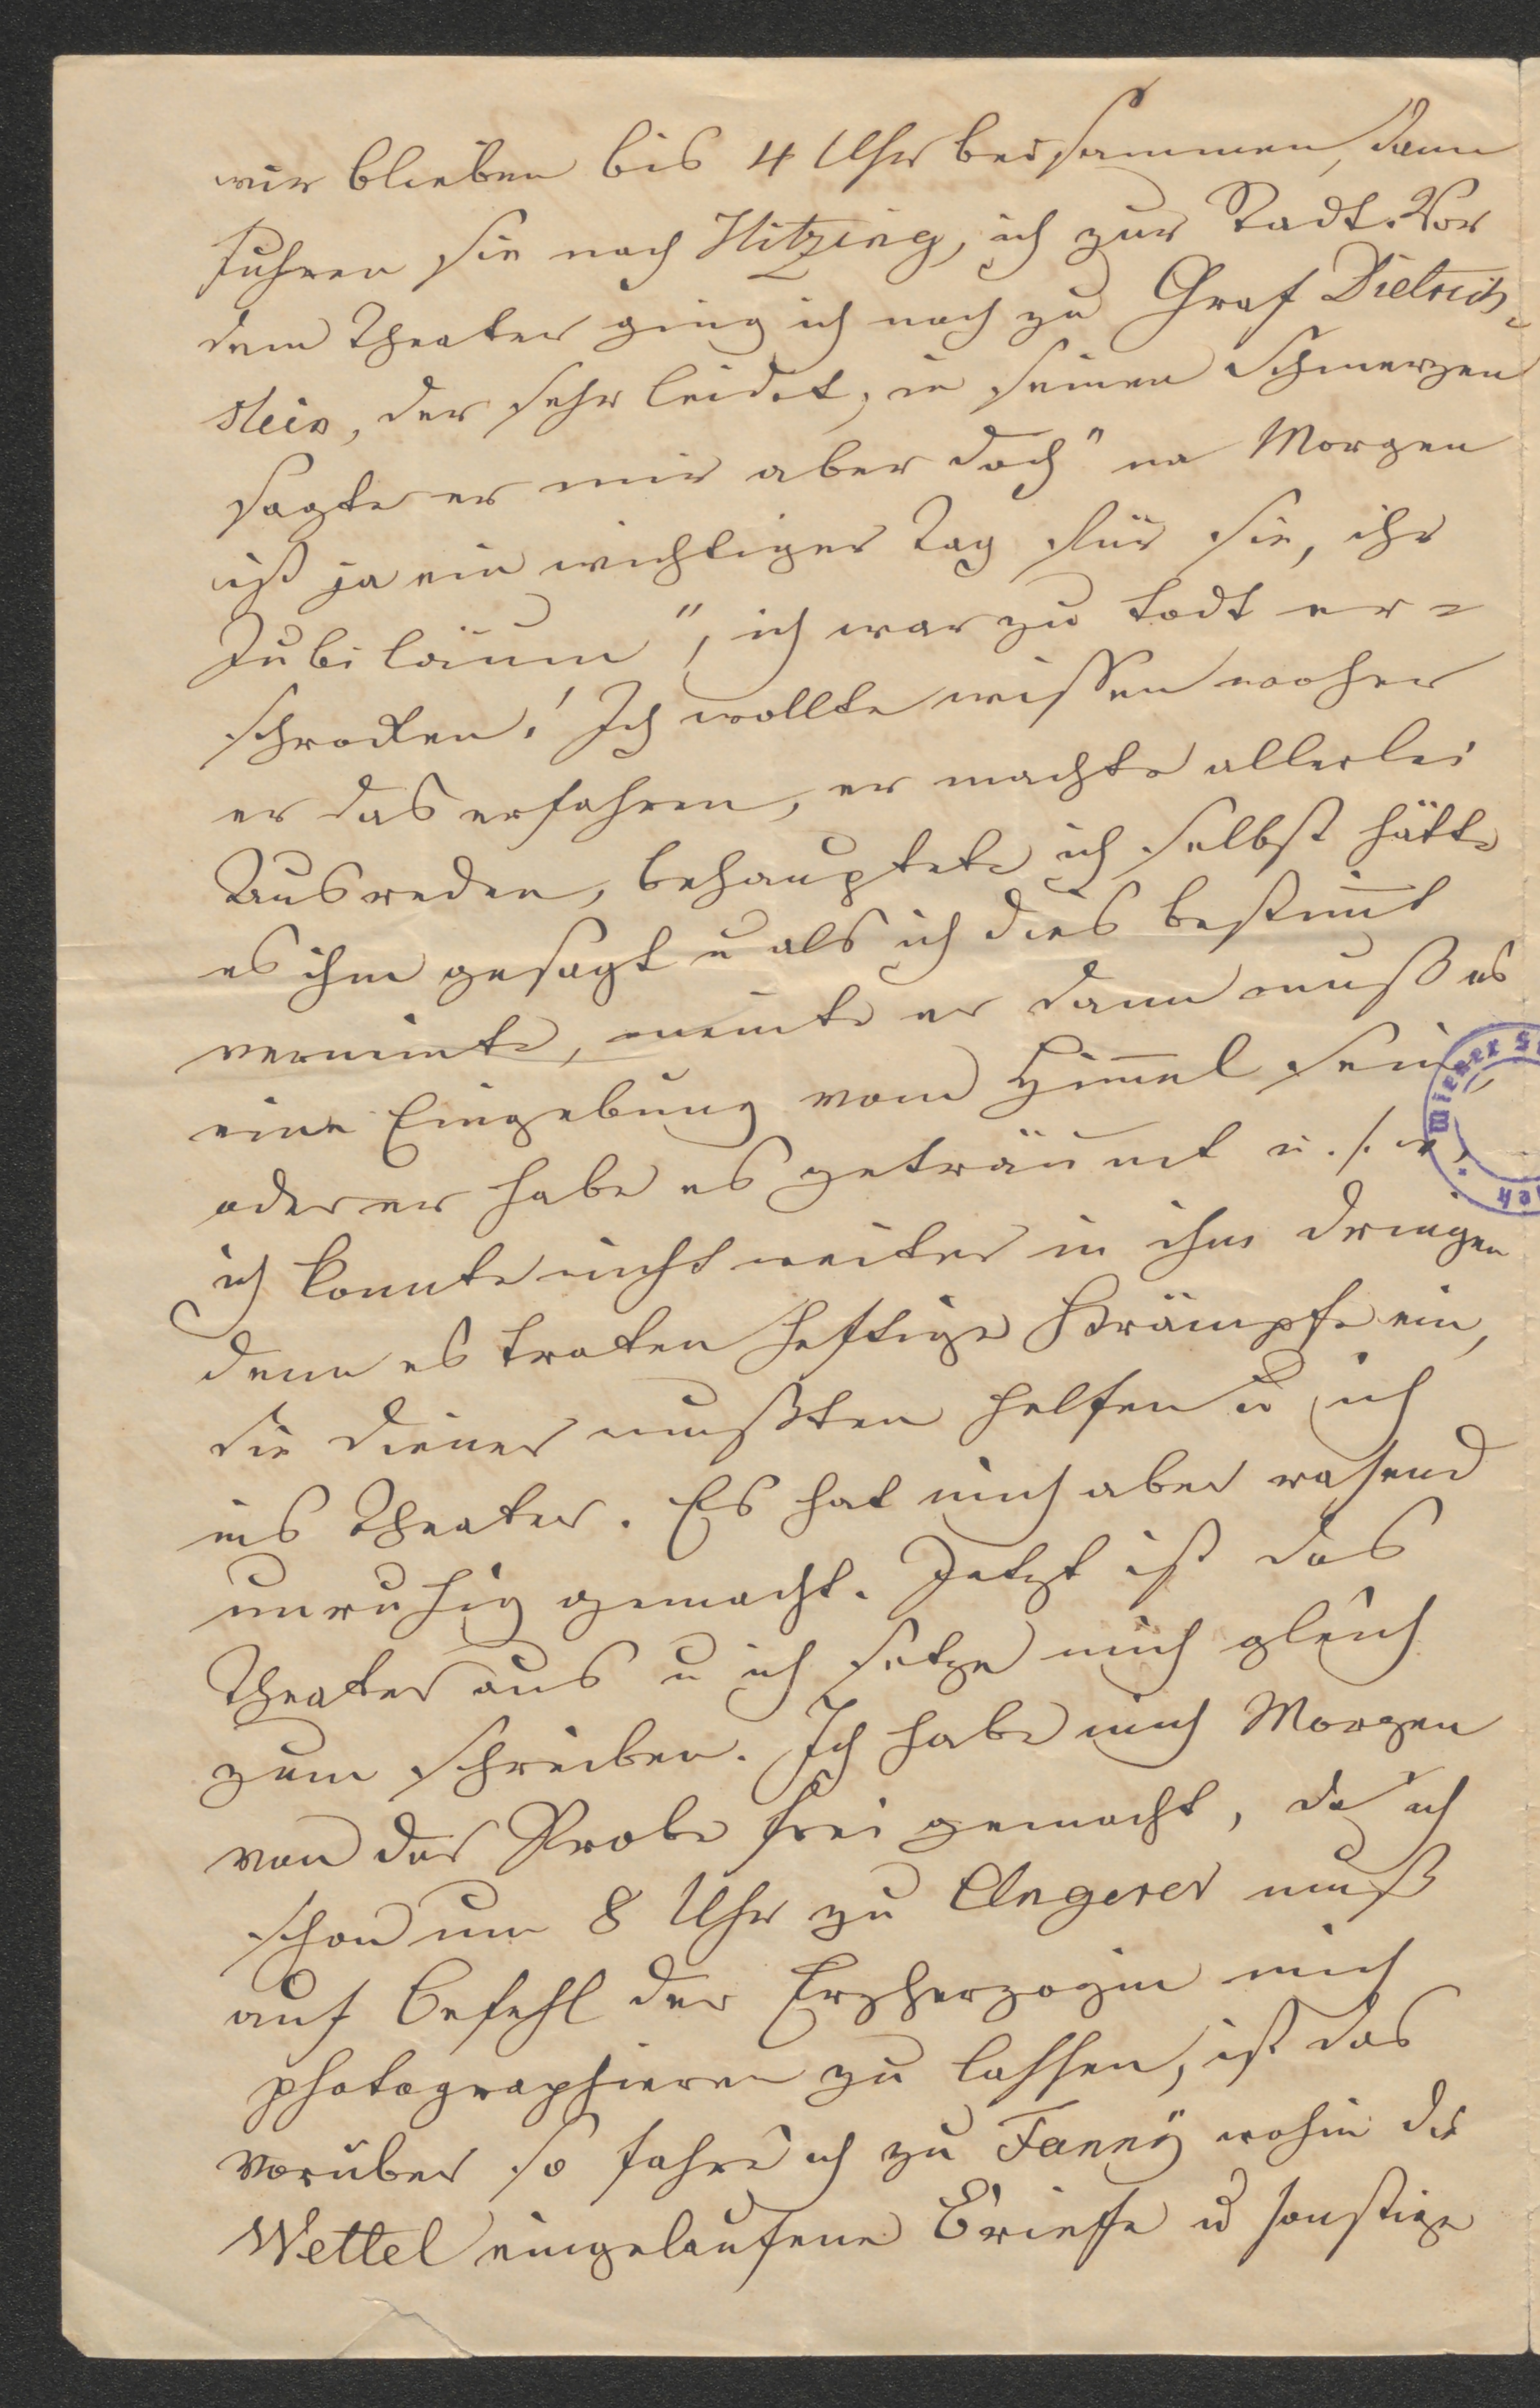 wir blieben bis 4 Uhr beisammen, dann
fuhren sie nach Hitzing, ich zur Stadt. Vor
dem Theater ging ich noch zu Graf Dietrich-
stein, der sehr leidet, in seinen Schmerzen
sagte er mir aber doch "na Morgen
ist ja ein wichtiger Tag für Sie, ihr
Jubiläum", ich war zu todt er=
schrocken! Ich wollte wissen woher
er das erfahren, er machte allerlei
Ausreden, behauptete ich selbst hätte
es ihm gesagt u als ich dies bestim̅t
verneinte, meinte er dann muß es
eine Eingebung vom Him̅el sein,
oder er habe es geträumt u. s. w.
ich konnte nicht weiter in ihn dringen
denn es traten heftige Krämpfe ein,
die Diener mußten helfen u ich
ins Theater. Es hat mich aber rasend
unruhig gemacht. Jetzt ist das
Theater aus u ich setze mich gleich
zum schreiben. Ich habe mich Morgen
von der Probe frei gemacht, da ich
schon um 8 Uhr zu Angerer muß
auf Befehl der Erzherzogin mich
photographieren zu lassen, ist das
vorüber so fahre ich zu Fanny wohin die
Wettel eingelaufene Briefe u sonstige
Wiener St